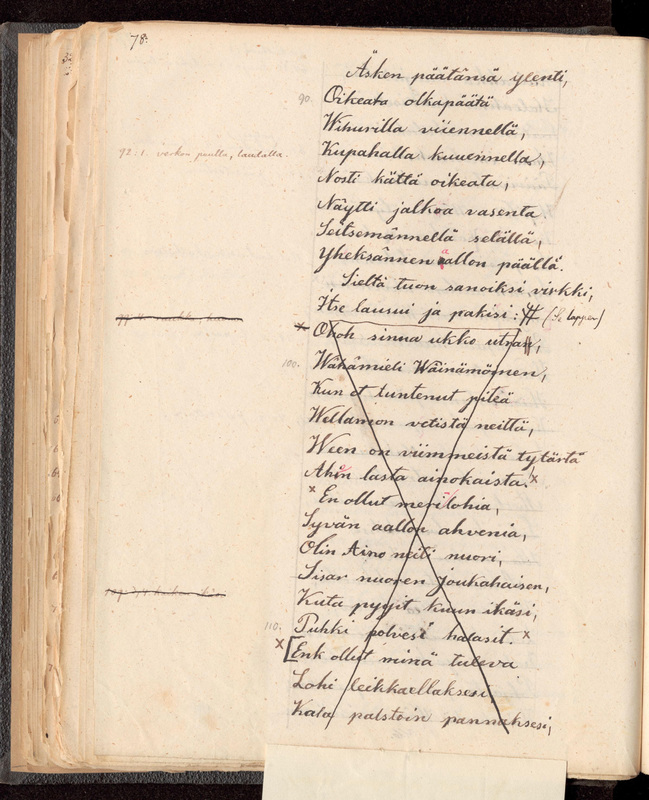 78.
Äsken päätänsä ylenti,
90. Oikeata olkapäätä
Wihurilla viiennellä,
92:1. verkon puulta, laudalta.
Kupahalla kuuennella,
Nosti kättä oikeata,
Näytti jalkoa vasenta
Seitsemännellä selällä,
Yheksännen aallon päällä.
Sieltä tuon sanoiksi virkki,
Itse lausui ja pakisi: # (Se loppu)
Ohoh sinua ukko utran,
100. Wähämieli Wäinämöinen,
Kun et tuntenut piteä
Wellamon vetistä neittä,
Ween on viimmeistä tytärtä
Ahin lasta ainokaista. x
x En ollut merilohia,
Syvän aallon ahvenia,
Olin Aino neiti nuori,
Sisar nuoren Joukahaisen,
Kuta pyyit kuun ikäsi,
110. Puhki polvesi halasit. x
x [Enk ollut minä tuleva
Lohi leikkaellaksesi,
Kala palstoin pannaksesi,